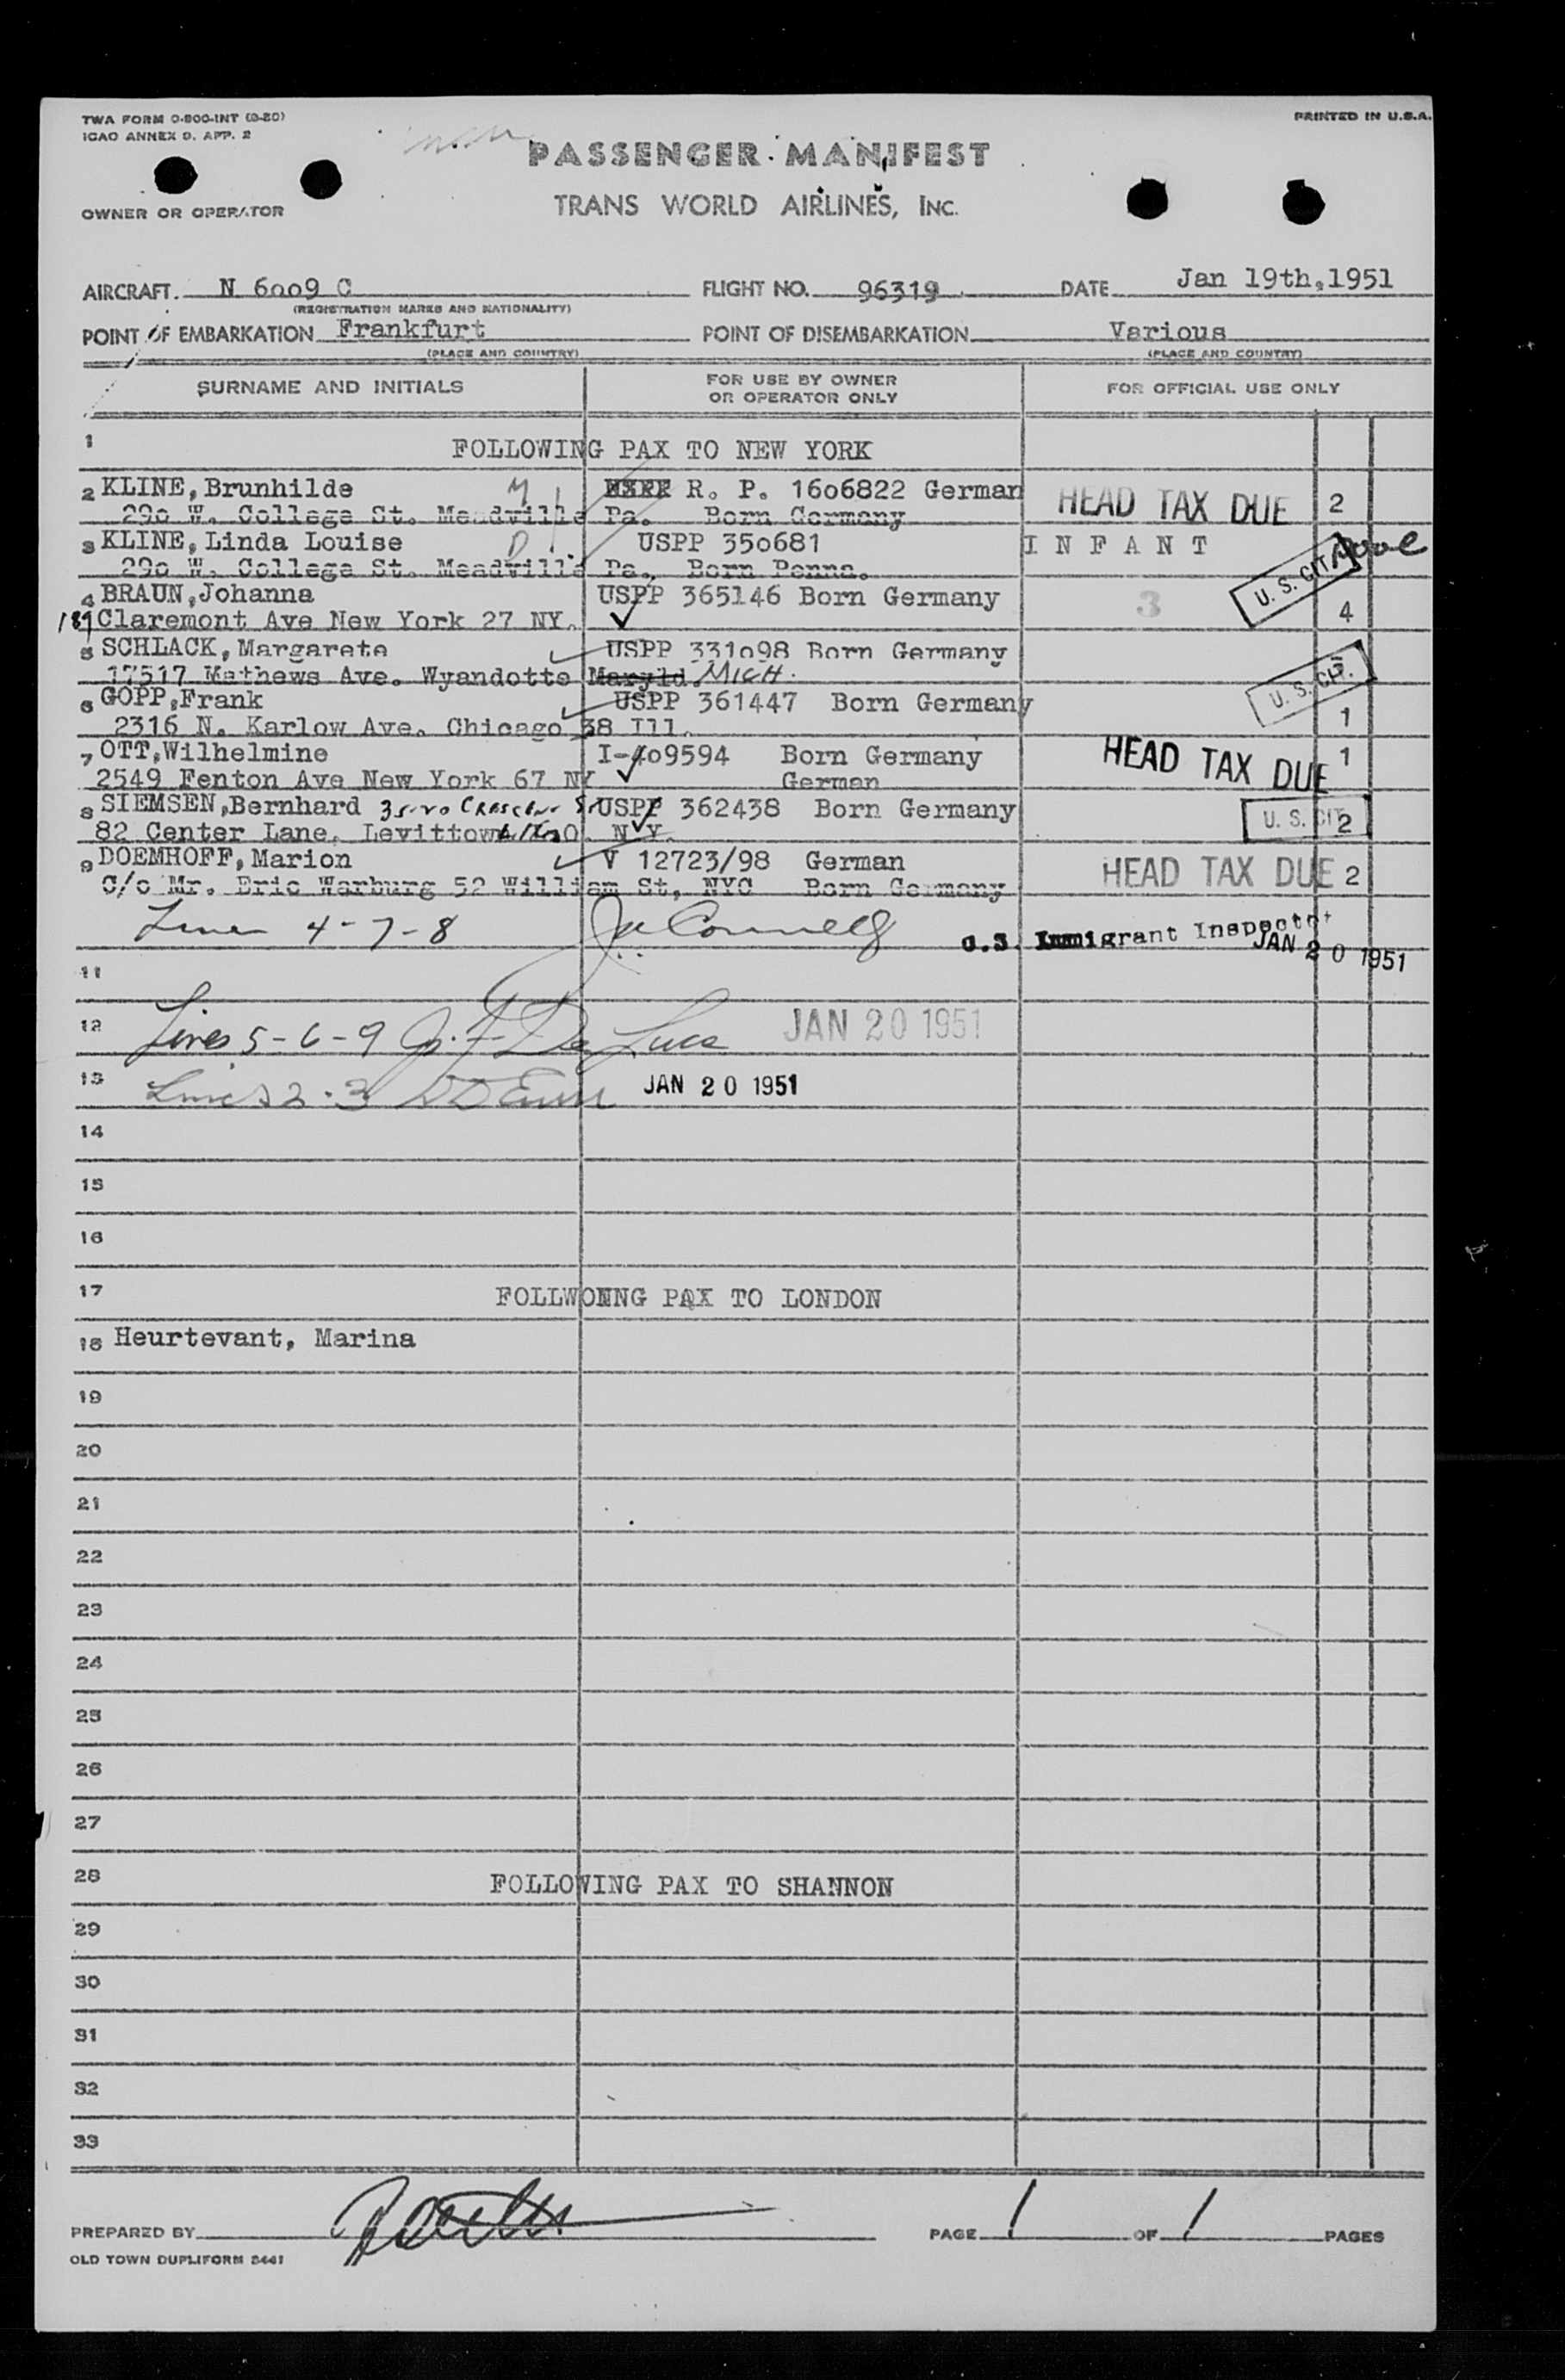 TWA FORM O-800-INT (9-50)
PRINTED IN U.S.A.
ICAO ANNEX 9. APP. 2
PASSENGER MANIFEST
OWNER OR OPERATOR
TRANS WORLD AIRLINES, INC.
AIRCRAFT. N 6oo9 C FLIGHT NO. 96319 DATE Jan 19th,1951
(REGISTRATION MARKS AND NATIONALITY)
POINT OF EMBARKATION Frankfurt POINT OF DISEMBARKATION Various
(PLACE AND COUNTRY) (PLACE AND COUNTRY)
SURNAME AND INITIALS FOR USE BY OWNER OR OPERATOR ONLY FOR OFFICIAL USE ONLY
1 FOLLOWING PAX TO NEW YORK
2 KLINE, Brunhilde M R. P. 16o6822 German HEAD TAX DUE 2
29o W. College St. Meadville Pa. Born Germany
3 KLINE, Linda Louise D USPP 35o681 I N F A N T
29o W. College St. Meadville Pa. Born Penna. U. S. CIT.
4 BRAUN, Johanna USPP 365146 Born Germany 3 4
189 Claremont Ave New York 27 NY.
5 SCHLACK, Margarete USPP 331o98 Born Germany
17517 Mathews Ave. Wyandotte Maryld. MICH. U. S. CIT.
6 GOPP, Frank USPP 361447 Born Germany 1
2316 N. Karlow Ave. Chicago 38 Ill.
7 OTT, Wilhelmine I-4o9594 Born Germany HEAD TAX DUE 1
2549 Fenton Ave New York 67 NY German
8 SIEMSEN, Bernhard USPP 362438 Born Germany U. S. CIT 2
82 Center Lane, Levittown N.Y.
9 DOEMHOFF, Marion V 12723/98 German HEAD TAX DUE 2
C/o Mr. Eric Warburg 52 William St, NYC Born Germany
4-7-8 U.S. Immigrant Inspector
JAN 20 1951
11
12 Lines 5-6-9 J. F. De Luca JAN 20 1951
13 Lines 2-3 JAN 20 1951
14
15
16
17 FOLLWONNG PAX TO LONDON
18 Heurtevant, Marina
19
20
21
22
23
24
25
26
27
28 FOLLOWING PAX TO SHANNON
29
30
31
32
33
PREPARED BY PAGE 1 OF 1 PAGES
OLD TOWN DUPLIFORM 8441